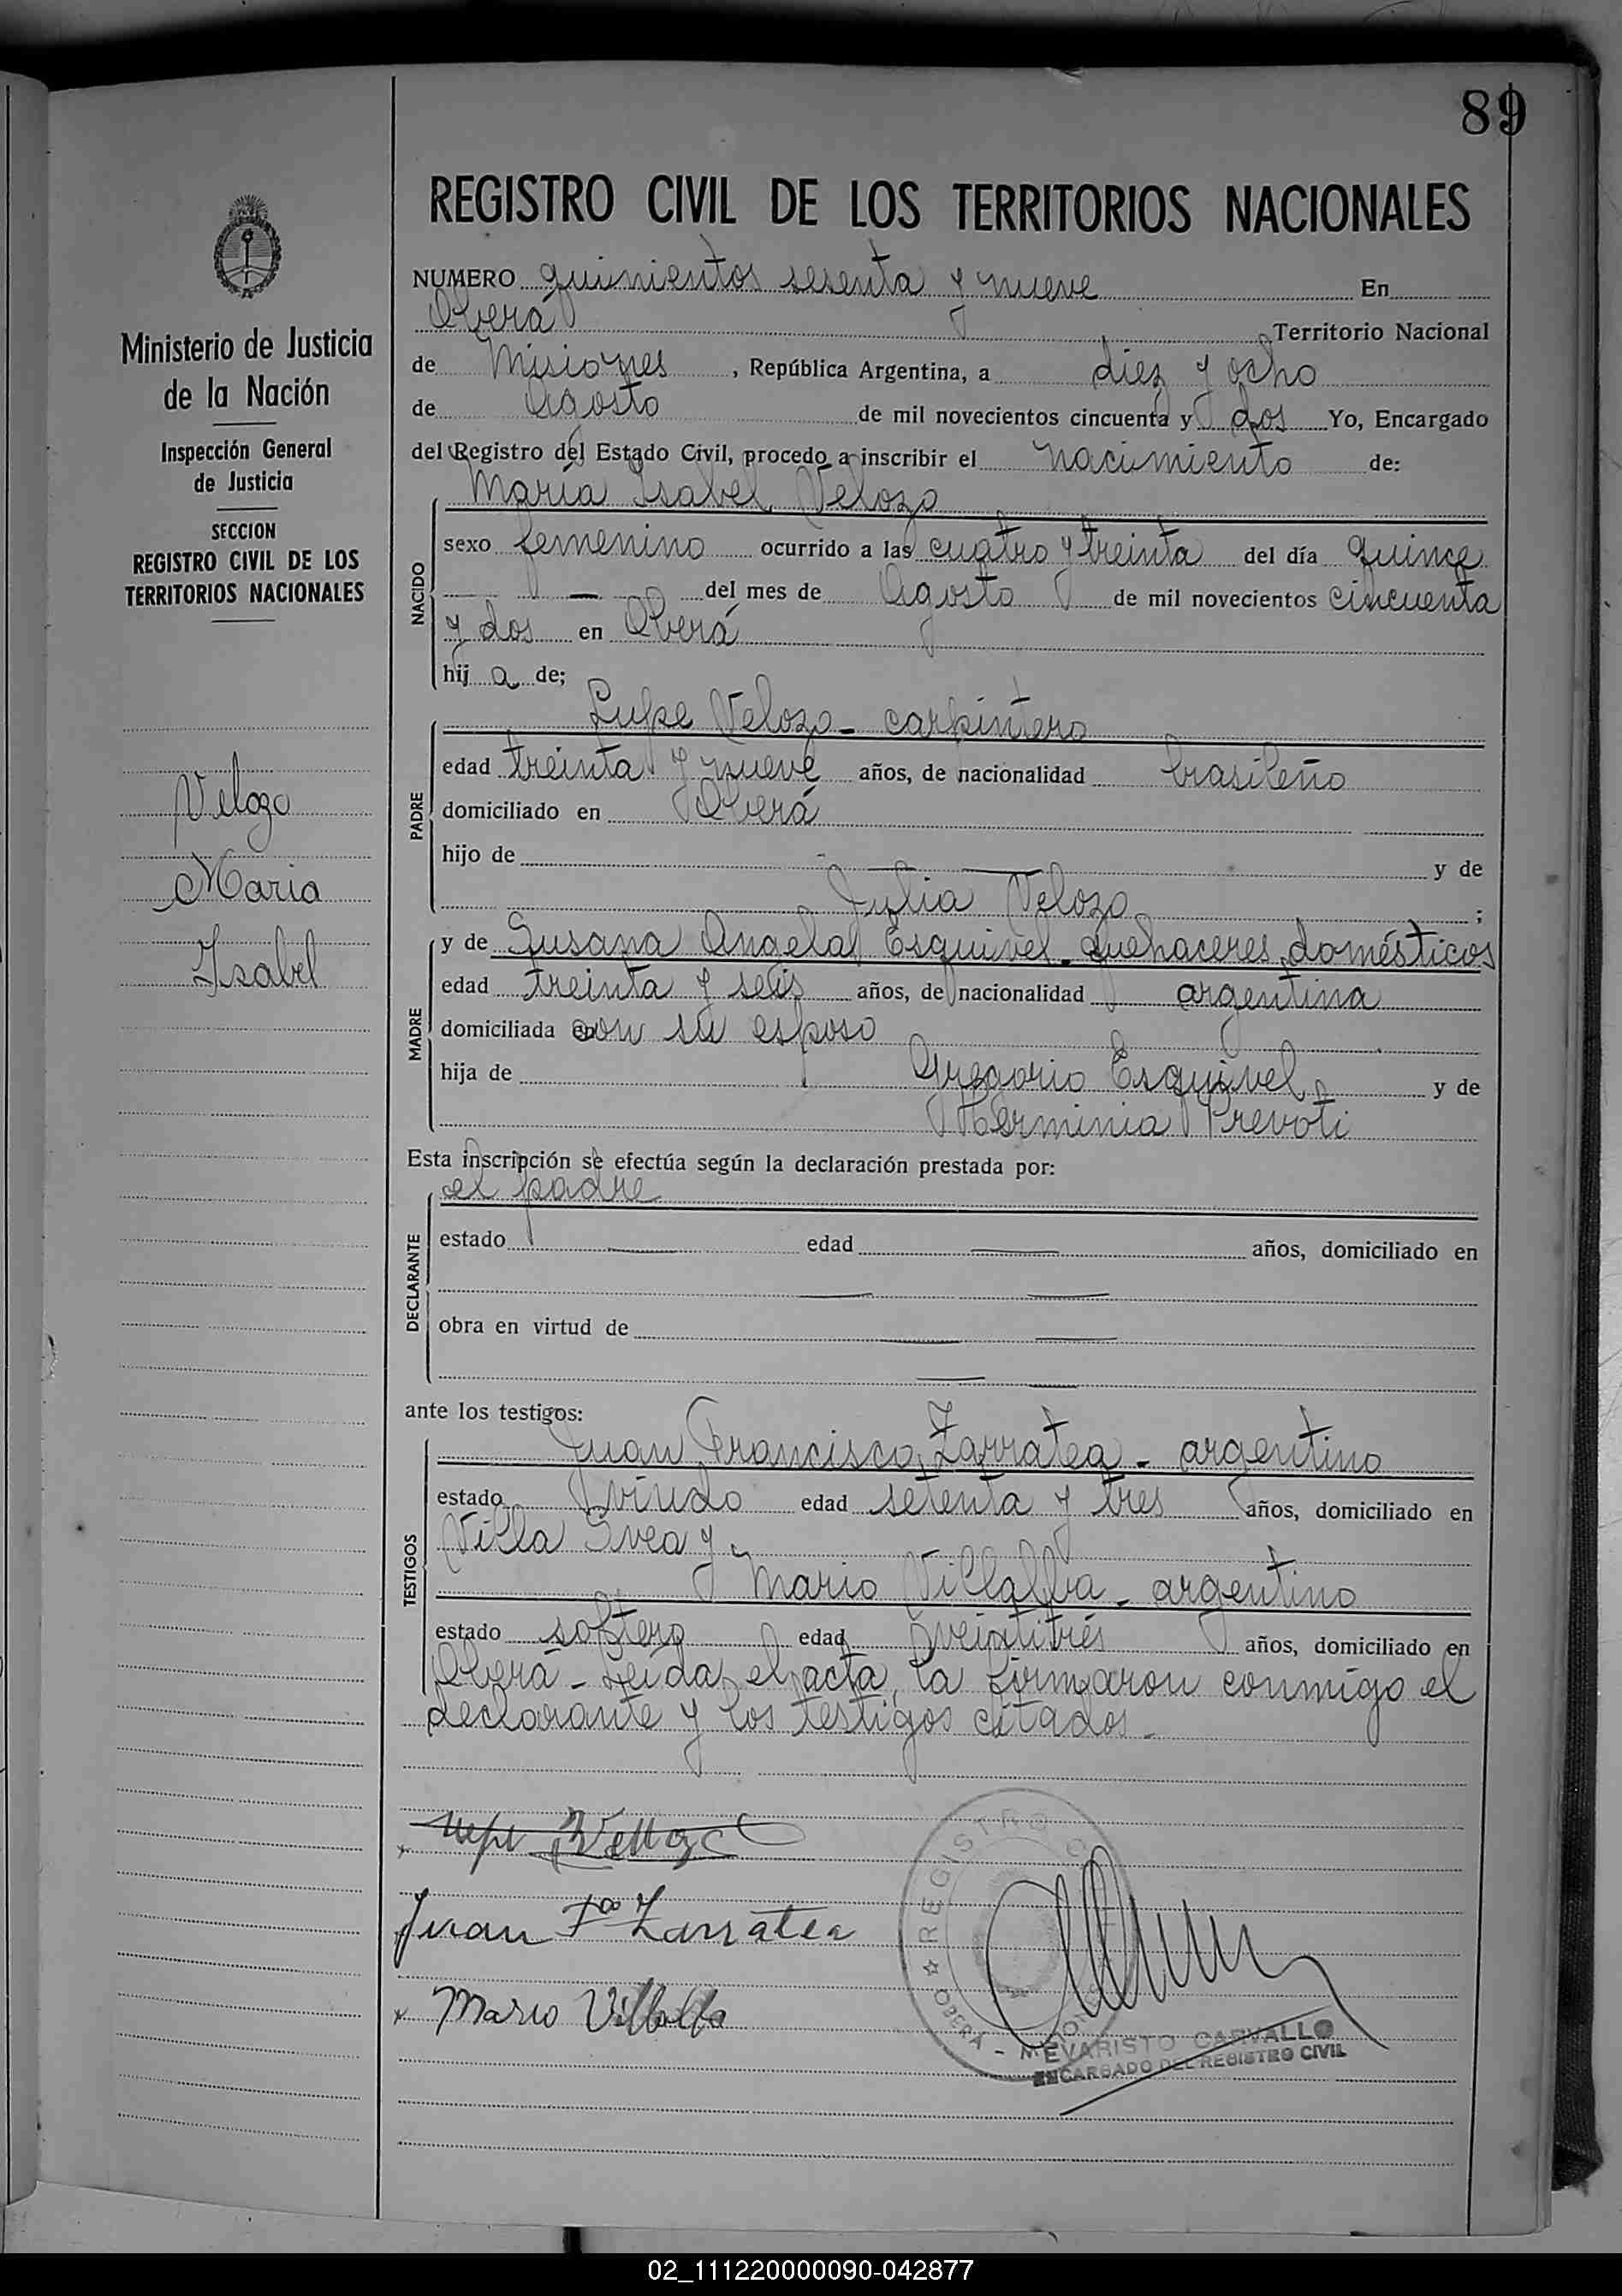 89
REGISTRO CIVIL DE LOS TERRITORIOS NACIONALES
Ministerio de Justicia
de la Nación
Inspección General
de Justicia
SECCION
REGISTRO CIVIL DE LOS
TERRITORIOS NACIONALES
Velozo
Maria
Isabel
NUMERO quinientos sesenta y nueve En
Oberá Territorio Nacional
de Misiones, República Argentina, a diez y ocho
de Agosto de mil novecientos cincuenta y dos Yo, Encargado
del Registro del Estado Civil, procedo a inscribir el nacimiento de:
NACIDO
María Isabel Velozo
sexo femenino ocurrido a las cuatro y treinta del día quince
— del mes de Agosto de mil novecientos cincuenta
y dos en Oberá
hij a de;
PADRE
Lupe Velozo - carpintero
edad treinta y nueve años, de nacionalidad brasileño
domiciliado en Oberá
hijo de — y de
Julia Velozo ;
MADRE
y de Susana Angela Esquivel - quehaceres domésticos
edad treinta y seis años, de nacionalidad argentina
domiciliada en con su esposo
hija de Gregorio Esquivel y de
Herminia Prevoti
Esta inscripción se efectúa según la declaración prestada por:
DECLARANTE
el padre
estado — edad — años, domiciliado en
— —
obra en virtud de — —
— —
ante los testigos:
TESTIGOS
Juan Francisco Zarratea - argentino
estado viudo edad setenta y tres años, domiciliado en
Villa Svea y
Mario Villalba - argentino
estado soltero edad veintitrés años, domiciliado en
Oberá - Leída el acta, la firmaron conmigo el
declarante y los testigos citados -
Juan Fco Zarratea
Mario Villalba
REGISTRO
OBERÁ - MISIONES
EVARISTO CARVALLO
ENCARGADO DEL REGISTRO CIVIL
02_111220000090-042877